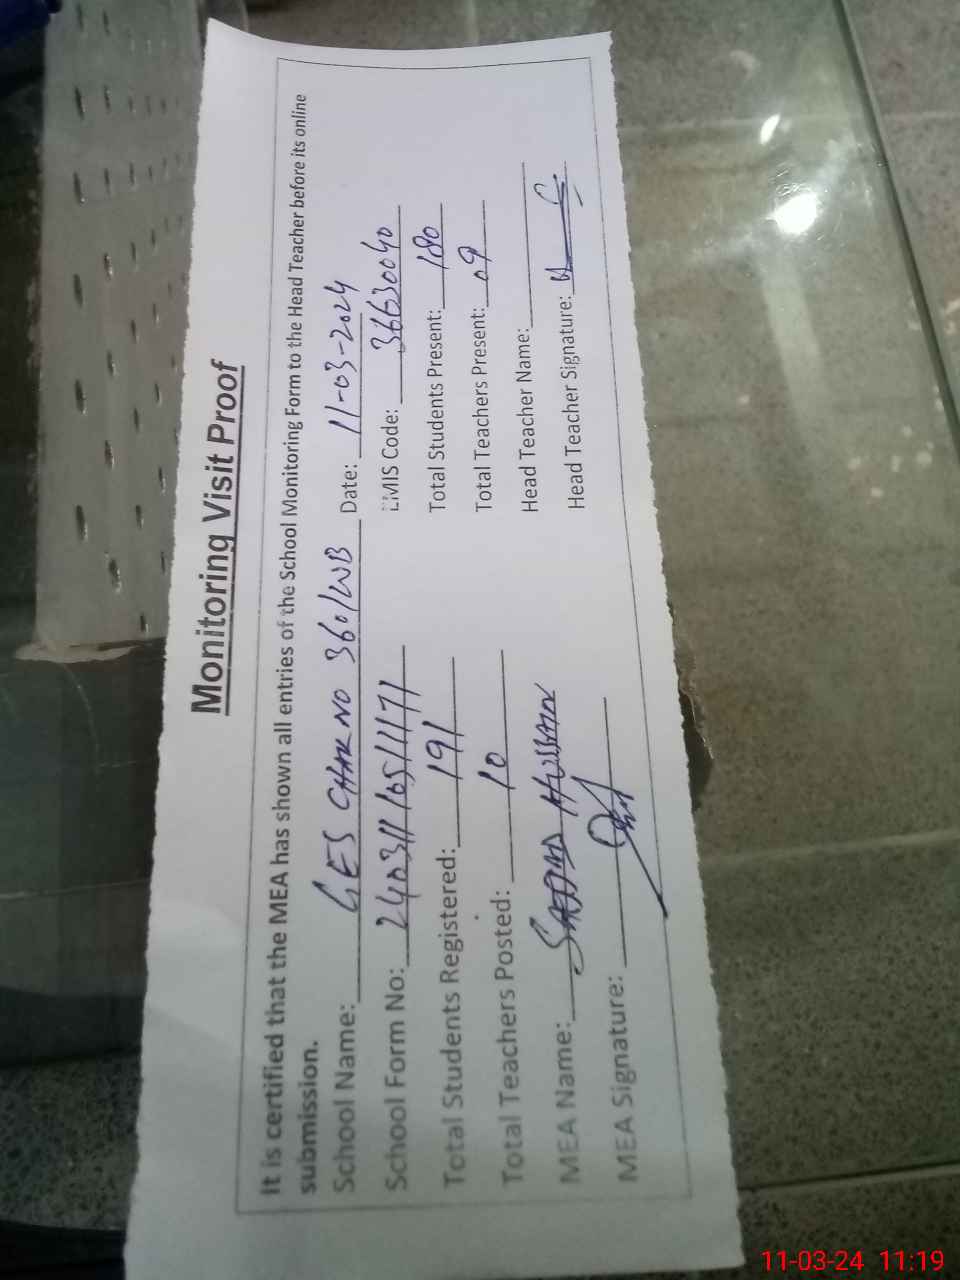 Monitoring Visit Proof
It is certified that the MEA has shown all entries of the School Monitoring Form to the Head Teacher before its online
submission.
School Name: GES CHAK NO 360/WB Date: 11-03-2024
School Form No: 240311105111171 EMIS Code: 36630040
Total Students Registered: 191 Total Students Present: 180
Total Teachers Posted: 10 Total Teachers Present: 09
MEA Name: SAJJAD HUSSAIN Head Teacher Name:
MEA Signature: Head Teacher Signature:
11-03-24 11:19